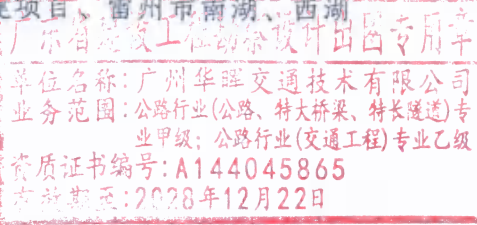 项目、雷州市南湖、西湖
广东省建设工程勘察设计出图专用章
单位名称:广州华晖交通技术有限公司
业务范围:公路行业(公路、特大桥梁、特长隧道)专
业甲级;公路行业(交通工程)专业乙级
资质证书编号:A144045865
有效期至:2028年12月22日